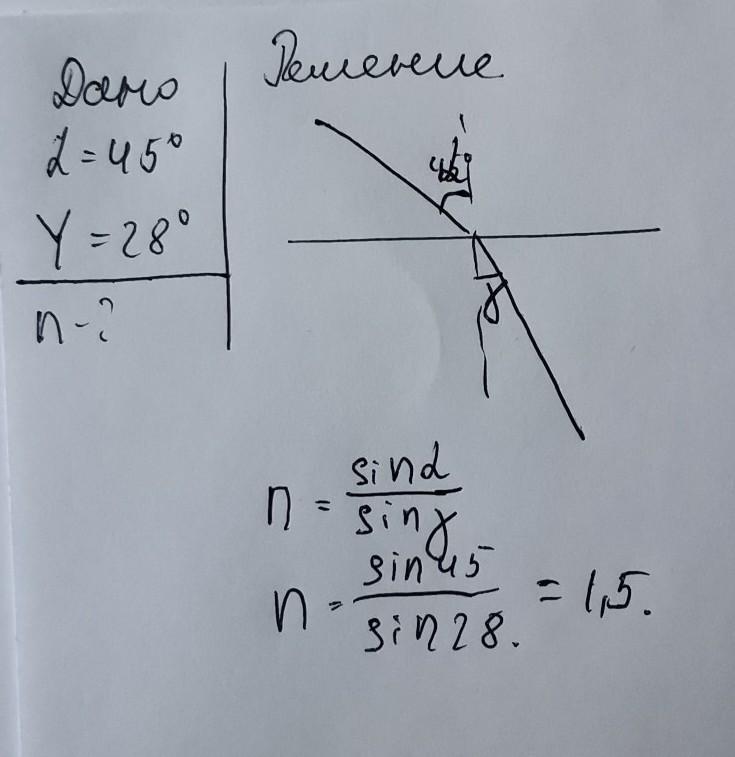 Дано
α = 45°
γ = 28°
n - ?
Решение
γ
n = sinα / sinγ
n = sin 45 / sin 28. = 1,5.